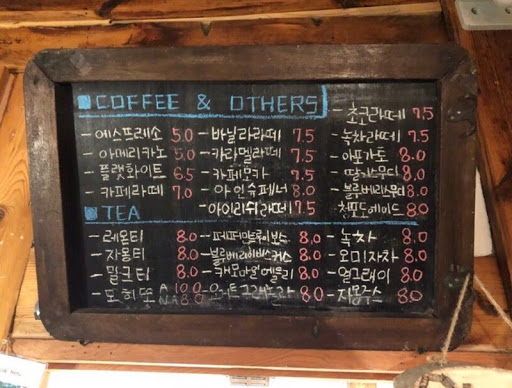 COFFEE & OTHERS
에스프레소 5.0
아메리카노 5.0
플랫화이트 6.5
카페라떼 7.0
바닐라라떼 7.5
카라멜라떼 7.5
카페모카 7.5
아인슈페너 8.0
아이리쉬라떼 7.5
초코라떼 7.5
녹차라떼 7.5
아포가토 8.0
딸기스무디 8.0
블루베리스무디 8.0
청포도에이드 8.0
TEA
레몬티 8.0
자몽티 8.0
밀크티 8.0
모히또 A 10.0
NA 8.0
8.0
8.0
8.0
8.0
녹차 8.0
오미자차 8.0
얼그레이 8.0
자몽쥬스 8.0